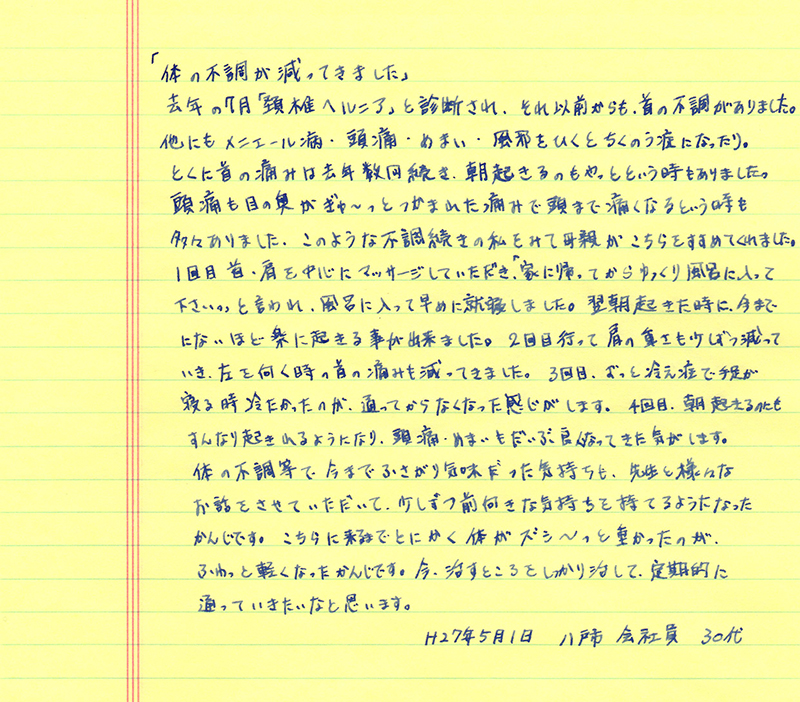 「体の不調が減ってきました」
去年の7月「頚椎ヘルニア」と診断され、それ以前からも、首の不調がありました。
他にもメニエール病・頭痛・めまい・風邪をひくとちくのう症になったり。
とくに首の痛みは去年数回続き、朝起きるのもやっとという時もありました。
頭痛も目の奥がぎゅ〜っとつかまれた痛みで頭まで痛くなるという時も
多々ありました、このような不調続きの私をみて母親がこちらをすすめてくれました。
1回目首・肩を中心にマッサージしていただき、「家に帰ってからゆっくり風呂に入って
下さい。」と言われ、風呂に入って早めに就寝しました。翌朝起きた時に、今まで
にないほど楽に起きる事が出来ました。2回目行って肩の重さも少しずつ減って
いき、左を向く時の首の痛みも減ってきました。3回目、ずっと冷え症で手足が
寝る時冷たかったのが、通ってからなくなった感じがします。4回目、朝起きるのにも
すんなり起きれるようになり、頭痛・めまいもだいぶ良くなってきた気がします。
体の不調等で今までふさがり気味だった気持ちも、先生と様々な
お話をさせていただいて、少しずつ前向きな気持ちを持てるようになった
かんじです。こちらに来るまでとにかく体がズシ〜っと重かったのが、
ふわっと軽くなったかんじです。今、治すところをしっかり治して、定期的に
通っていきたいなと思います。
H27年5月1日 八戸市 会社員 30代